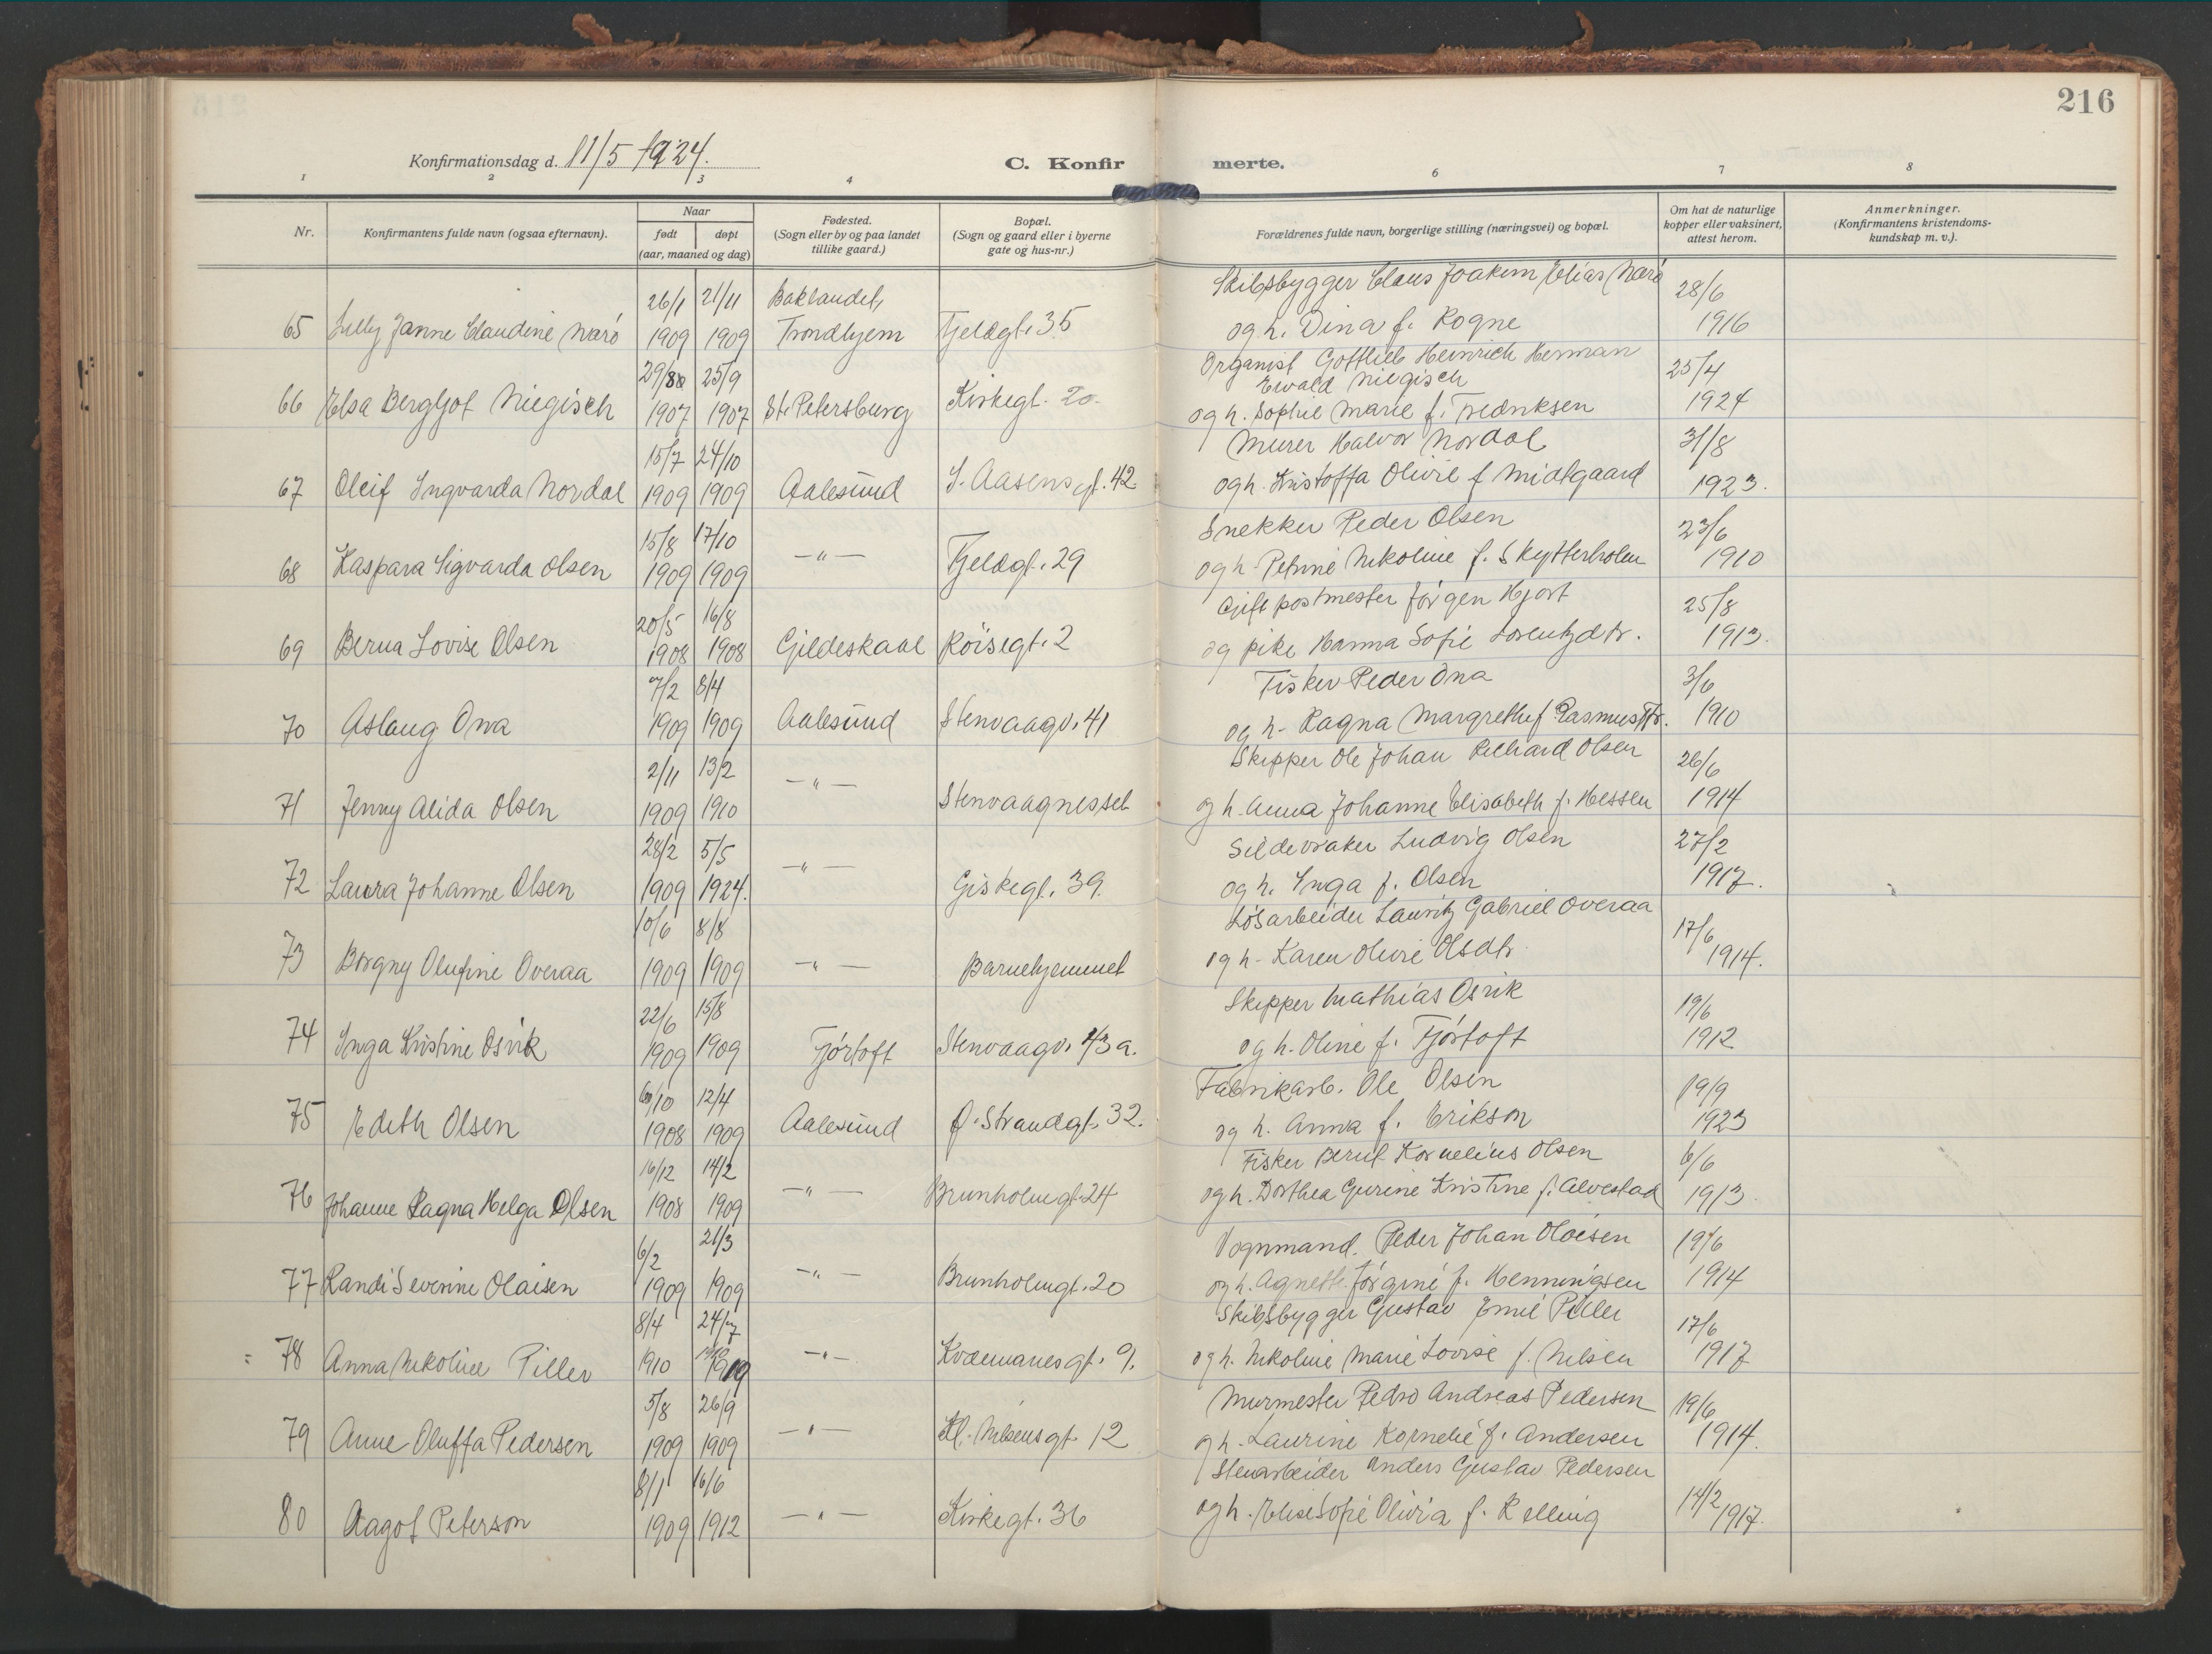 216
Konfirmationsdag d. 11/5 1924.
C. Konfirmerte.
1 2 3 4 6 7 8
Nr.
Konfirmantens fulde navn (ogsaa efternavn).
Naar
født døpt
(aar, maaned og dag)
Fødested.
(Sogn eller by og paa landet
tillike gaard.)
Bopæl.
(Sogn og gaard eller i byerne
gate og hus-nr.)
Forældrenes fulde navn, borgerlige stilling (næringsvei) og bopæl.
Om hat de naturlige
kopper eller vaksinert,
attest herom.
Anmerkninger.
(Konfirmantens kristendoms-
kundskap m. v.).
26/1 21/11 Baklandet, Skibsbygger Claus Joakim Elias Nærö 28/6
65 Lilly Janne Claudine Nærö 1909 1909 Trondhjem Fjeldgt. 35 og h. Dina f. Rogne 1916
29/8 25/9 Organist Gottlieb Heinrich Herman 25/4
Ewald Niegisch
66 Elsa Bergljot Niegisch 1907 1907 St. Petersburg Kirkegt. 20. og h. Sophie Marie f. Fredriksen 1924
15/7 24/10 Murer Halvor Nordal 31/8
67 Oleif Ingvarda Nordal 1909 1909 Aalesund I. Aasensgt. 42 og h. Kristoffa Olivie f. Midtgaard 1923.
15/8 17/10 Snekker Peder Olsen 23/6
68 Kaspara Sigvarda Olsen 1909 1909 —"— Fjeldgt. 29 og h. Petrine Nikoline f. Skytterholm 1910
20/5 16/8 Gift postmester Jörgen Hjort 25/8
69 Berna Lovise Olsen 1908 1908 Gildeskaal Röisegt. 2 og pike Hanna Sofie Lorentzdtr. 1913.
7/2 8/4 Fisker Peder Ona 3/6
70 Aslaug Ona 1909 1909 Aalesund Stenvaagv. 41 og h. Ragna Margrethe f. Rasmusdtr. 1910
2/11 13/2 Skipper Ole Johan Richard Olsen 26/6
71 Jenny Alida Olsen 1909 1910 —"— Stenvaagnesset og h. Anna Johanne Elisabeth f. Hessen 1914
28/2 5/5 Sildevraker Ludvig Olsen 27/2
72 Laura Johanne Olsen 1909 1924. —"— Giskegt. 39. og h. Inga f. Olsen 1917.
10/6 8/8 Lösarbeider Lauritz Gabriel Overaa 17/6
73 Borgny Olufine Overaa 1909 1909 —"— Barnehjemmet og h. Karen Olivie Olsdtr. 1914.
22/6 15/8 Skipper Mathias Osvik 19/6
74 Inga Kristine Osvik 1909 1909 Fjörtoft Stenvaagv. 43 a. og h. Oline f. Fjörtoft 1912
6/10 12/4 Fabrikarb. Ole Olsen 19/9
75 Edith Olsen 1908 1909 Aalesund Ø. Strandgt. 32. og h. Anna f. Erikson 1923
16/12 14/2 Fisker Bernt Kornelius Olsen 6/6
76 Johanne Ragna Helga Olsen 1908 1909 —"— Brunholmgt. 24 og h. Dorthea Gurine Kristine f. Alvestad 1913.
6/2 21/3 Vognmand. Peder Johan Olaisen 19/6
77 Randi Severine Olaisen 1909 1909 —"— Brunholmgt. 20 og h. Agnethe Jörgine f. Henningsen 1914
8/4 24/7 Skibsbygger Gustav Emil Piller 17/6
78 Anna Nikoline Piller 1910 1910 —"— Kvæmanesgt. 9. og h. Nikoline Marie Lovise f. Nilsen 1917
5/8 26/9 Murmester Pedro Andreas Pedersen 19/6
79 Anne Oluffa Pedersen 1909 1909 —"— Kl. Nilsensgt. 12 og h. Laurine Kornelie f. Andersen 1914.
8/1 16/6 Stenarbeider Anders Gustav Pedersen 14/2
80 Aagot Peterson 1909 1912 —"— Kirkegt. 36 og h. Elise Sofie Olivia f. Relling 1917.